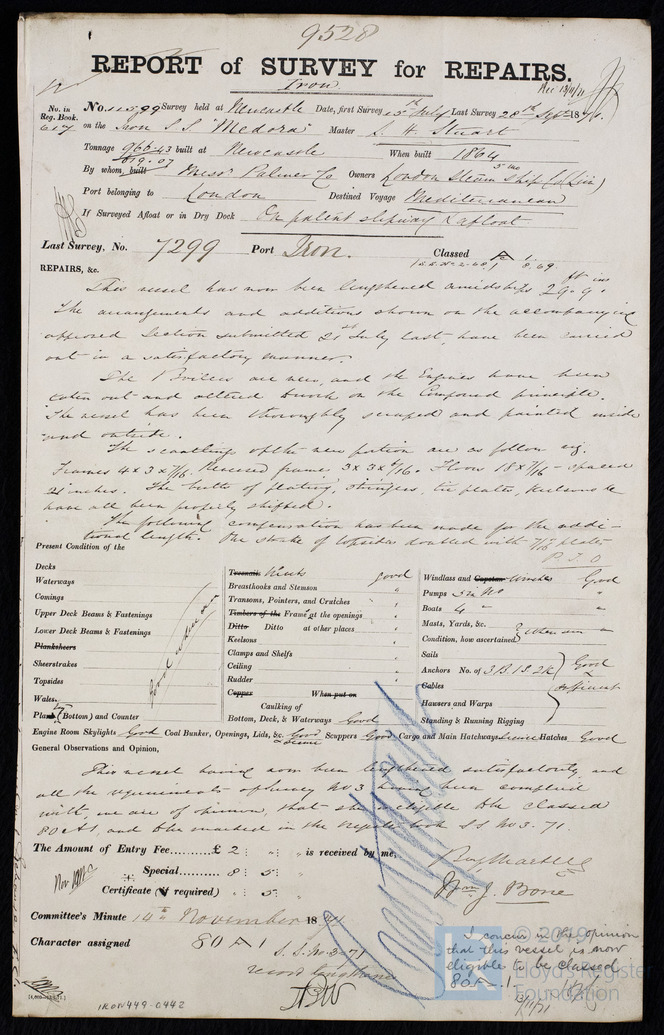 9528
REPORT of SURVEY for REPAIRS.
Iron
No. in Reg. Book. 617
No. 11599 Survey held at Newcastle Date, first Survey 15th July Last Survey 28th Sept 1871
on the Iron S.S. "Medora" Master S. H. Stuart
Tonnage 966.43 built at Newcastle When built 1864
619.07
By whom built Messrs Palmer Co Owners London Steam Ship Co (Lim)
Port belonging to London Destined Voyage Mediterranean
If Surveyed Afloat or in Dry Dock On patent slipway & afloat
Last Survey, No. 7299 Port Iron. Classed A 1
8.69
REPAIRS, &c.
This vessel has now been lengthened amidships 29 ft 9 ins.
The arrangements and additions shown on the accompanying
approved Section submitted 21st July last, have been carried
out in a satisfactory manner.
The Boilers are new, and the Engines have been
taken out and altered to work on the Compound principle.
The vessel has been thoroughly scraped and painted inside
and outside.
The scantling of the new portion are as follow viz.
Frames 4 x 3 x 7/16. Reversed frames 3 x 3 x 6/16. Floors 18 x 7/16 - spaced
21 inches. The butts of plating, stringers, tie plates, keelsons &c
have all been properly shifted.
The following compensation has been made for the addi-
tional length. The strake of topsides doubled with 7/16 plates
P.T.O
Present Condition of the
Decks
Waterways
Comings
Upper Deck Beams & Fastenings
Lower Deck Beams & Fastenings
Planksheers
Sheerstrakes
Topsides
Wales
Plank (Bottom) and Counter
Treenails Rivets good
Breasthooks and Stemson "
Transoms, Pointers, and Crutches "
Timbers of the Frame at the openings "
Ditto Ditto at other places "
Keelsons "
Clamps and Shelfs "
Ceiling "
Rudder "
Copper When put on
Caulking of
Bottom, Deck, & Waterways Good
Windlass and Capstan Winches Good
Pumps "
Boats 4 "
Masts, Yards, &c. "
Condition, how ascertained
Sails
Anchors No. of 3 B. 1 S. 2 K Good
Cables
Hawsers and Warps
Standing & Running Rigging
Engine Room Skylights Good Coal Bunker, Openings, Lids, &c. Good Secure Scuppers Good Cargo and Main Hatchways Secure Hatches Good
General Observations and Opinion,
This vessel having now been lengthened satisfactorily and
all the requirements of Survey No 3 having been complied
with, we are of opinion, that she is eligible to be classed
80 A1, and to be marked in the register book SS No 3. 71.
The Amount of Entry Fee £ 2 : " : " is received by me,
Special 8 : 5 : "
Certificate (if required) " : 5 : "
Committee's Minute 14th November 1871
Character assigned 80 A 1
S.S. No. 3-71
I concur in the opinion
that this vessel is now
eligible to be classed
80 A 1.
IRON449-0442
© 2019
Lloyd's Register
Foundation